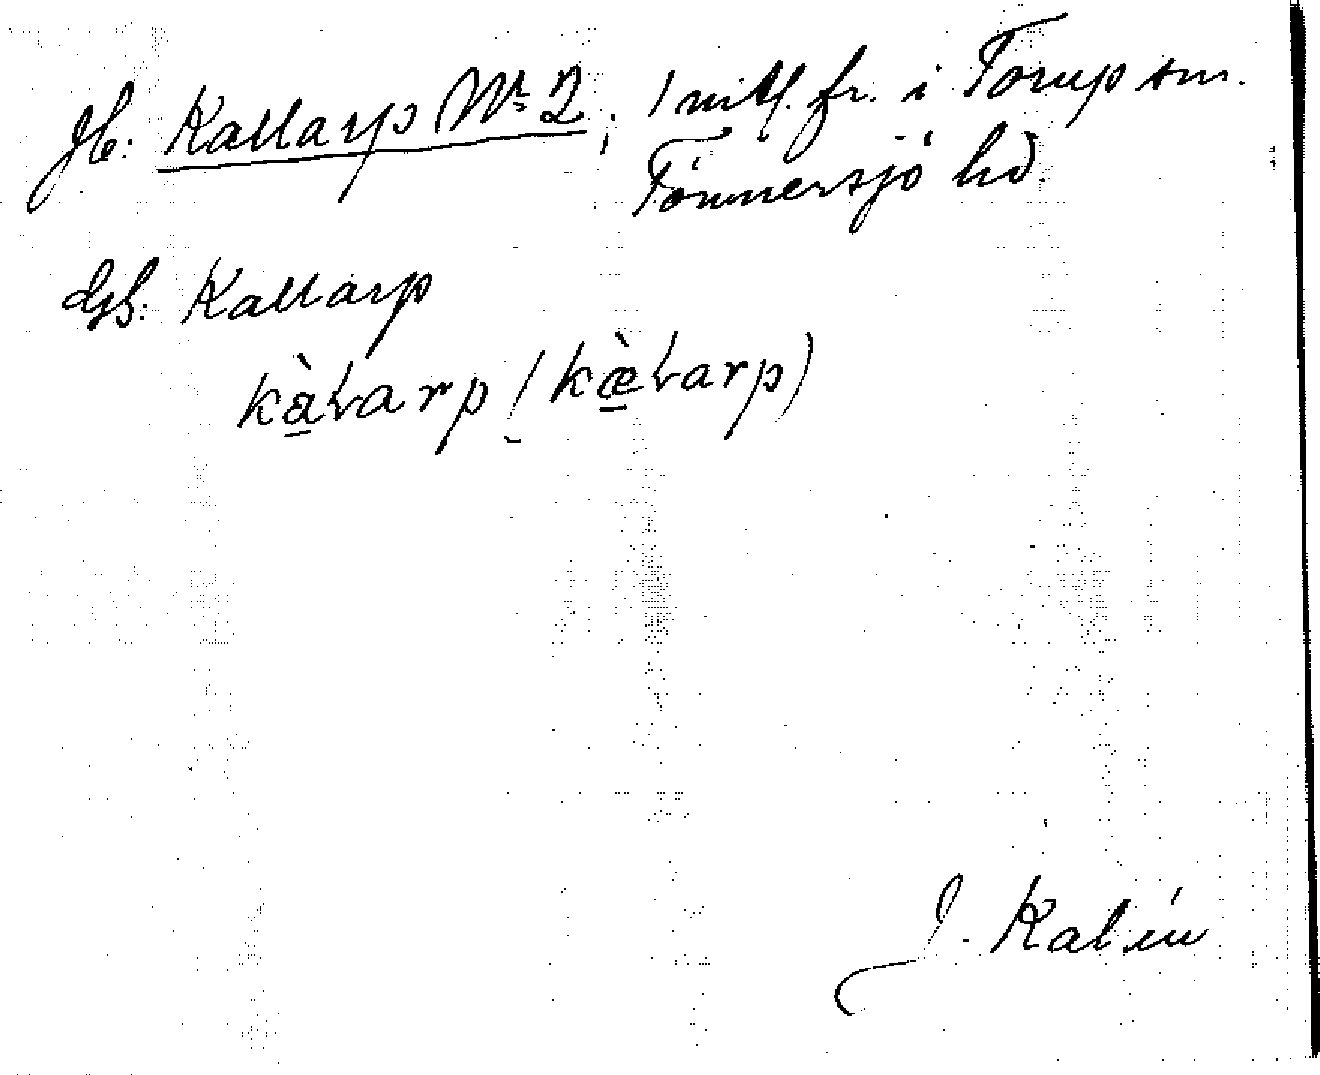 Jb. Kallarp Nr 2; 1 mtl. fr. i Torup sn.
Tönnersjö hd.
Gs. Kallarp
kàɫarp (kæ̀ɫarp)
J. Kalén